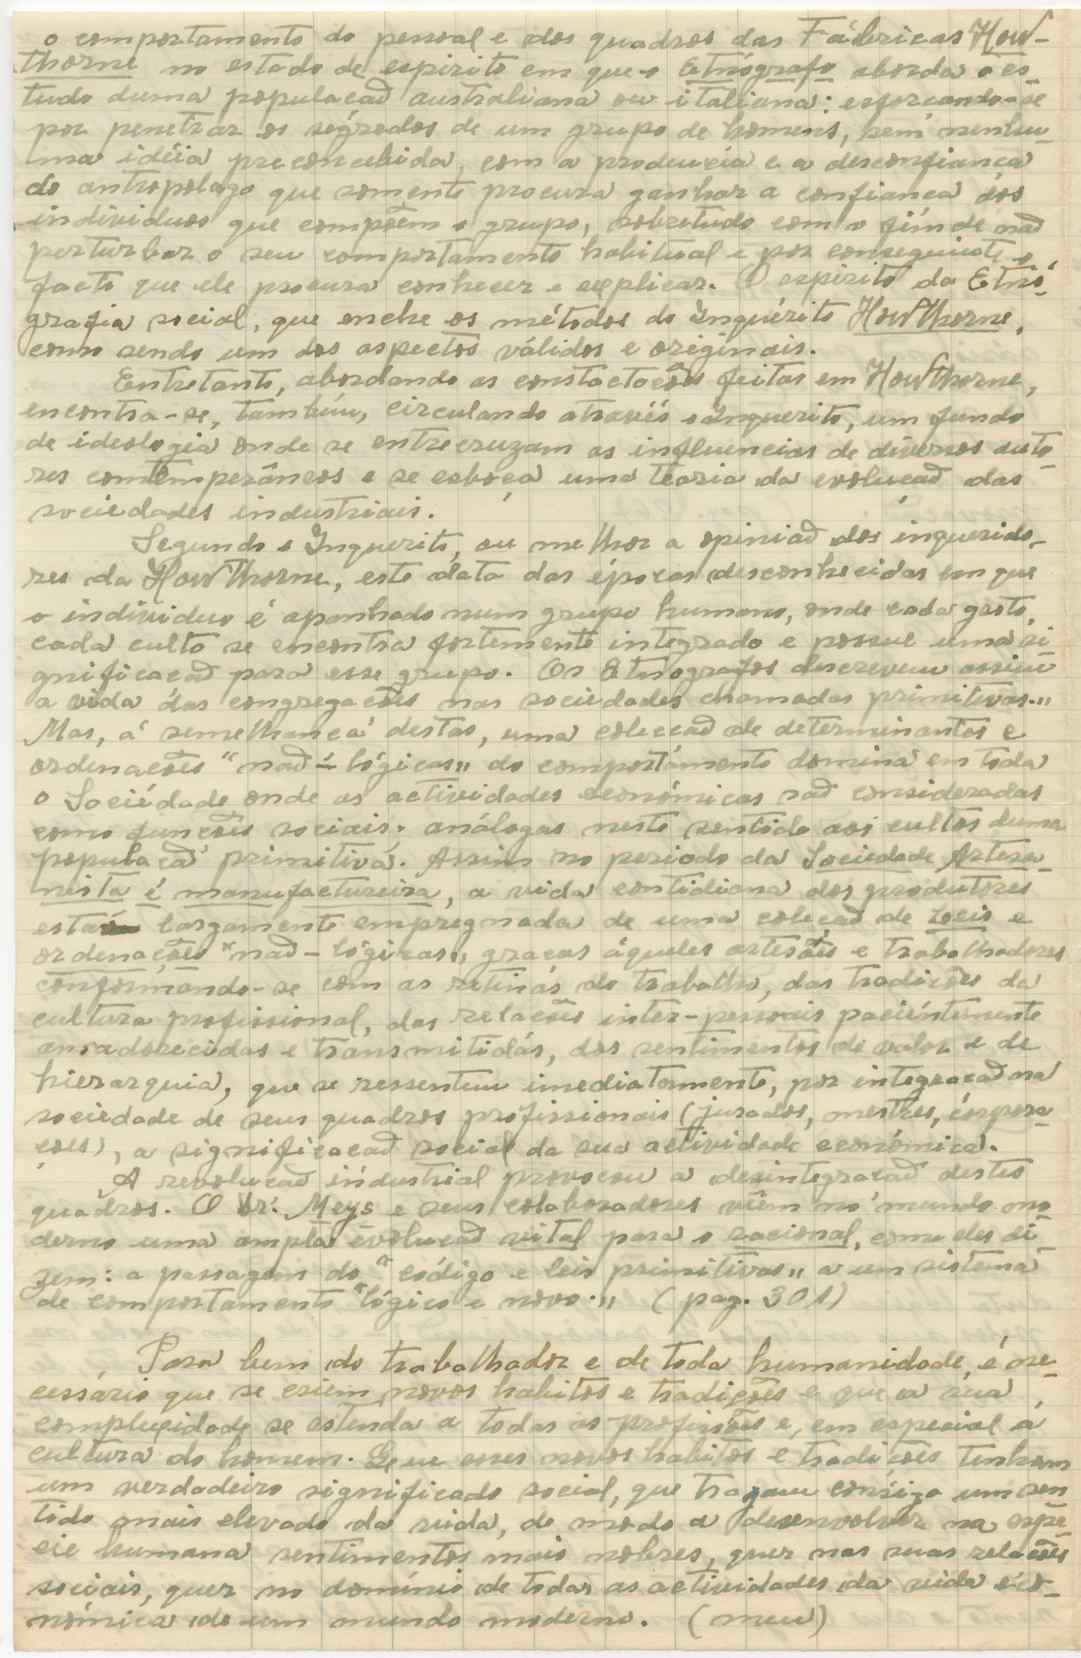 o comportamento do pessoal e dos quadros das Fábricas How-
thorne no estado de espirito em que o Etnógrafo aborda o es-
tudo duma populacaõ australiana ou italiana: esforcando-se
por penetrar os ségredos de um grupo de homens, sem nenhu-
ma idéia preconcebida, com a prudencia e a desconfianca
do antropólogo que somente procura ganhar a confianca dos
individuos que compõem o grupo, sobretudo com o fim de naõ
perturbar o seu comportamento habitual e por conseguinte o
facto que ele procura conhecer e explicar. O espirito da Etnó-
grafia social, que enche os métodos do Inquérito HowThorne,
como sendo um dos aspectos válidos e originais.
Entretanto, abordando as constactacões feitas em HowThorne,
encontra-se, também, circulando através o Inquerito, um fundo
de ideologia onde se entrecruzam as influencias de diversos auto-
res contemperâneos e se esboça uma teoria da evolucaõ das
sociedades industriais.
Segundo o Inquerito, ou melhor a opiniaõ dos inquerido-
res da HowThorne, este data das épocas desconhecidas em que
o individuo é apanhado num grupo humano, onde cada gesto,
cada culto se encontra fortemente integrado e possue uma si-
gnificacaõ para esse grupo. Os Etnografos descrevem assim
a vida das congregacões nas sociedades chamadas primitivas."
Mas, á semelhanca destas, uma coleccaõ de determinantes e
ordenacões "naõ-lógicas" do comportamento domina em toda
o Sociédade onde as actividades económicas saõ consideradas
como funcões sociais. análogas neste sentido aos cultos duma
populacaõ primitiva. Assim no periodo da Sociedade Artesa-
nista é manufactureira, a vida contidiana dos produtores
está largamente empregnada de uma coleçaõ de Leis e
ordenações "naõ-lógicas" gracas áqueles artesões e trabalhadores
conformando-se com as rotinas do trabalho, das tradicões da
cultura profissional, das relacões inter-pessoais paciéntemente
amadorecidas e transmitidas, dos sentimentos de valor e de
hierarquia, que se ressentem imediatamente, por integracaõ na
sociedade de seus quadros profissionais (jurados, mestres, corpora-
cões), a significacaõ social da sua actividade económica.
A revolucaõ industrial provocou a desintegracaõ destes
quadros. O Dr. Meys e seus colaboradores vêem no mundo mo-
derno uma ampla evolucaõ vital para o racional, como eles di-
zem: a passagem do "código e leis primitivas" a um sistema
de comportamento "lógico e novo." (pag. 301)
Para bem do trabalhador e de toda humanidade, é ne-
cessário que se criem novos habitos e tradições e que a sua
complexidade se estenda a todas as profissões e, em especial á
cultura do homem. Que esses novos habitos e tradicões tenham
um verdadeiro significado social, que tragam consigo um sen-
tido mais elevado da vida, de modo a desenvolver na espé-
cie humana sentimentos mais nobres, quer nas suas relacões
sociais, quer no domínio de todas as actividades da vida eco-
nómica de um mundo moderno. (meu)